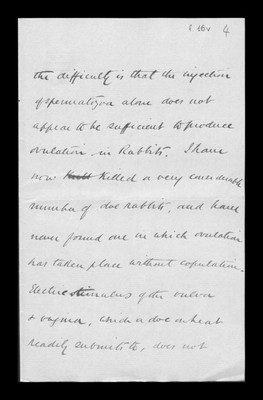 f. 16v 4
the difficulty is that the injection
of spermatozoa alone does not
appear to be sufficient to produce
ovulation in Rabbits. I have
now killed a very considerable
number of doe rabbits, and have
never found one in which ovulation
has taken place without copulation.
Electric stimulus of the vulva
+ vagina, which a doe on heat
readily submits to, does not